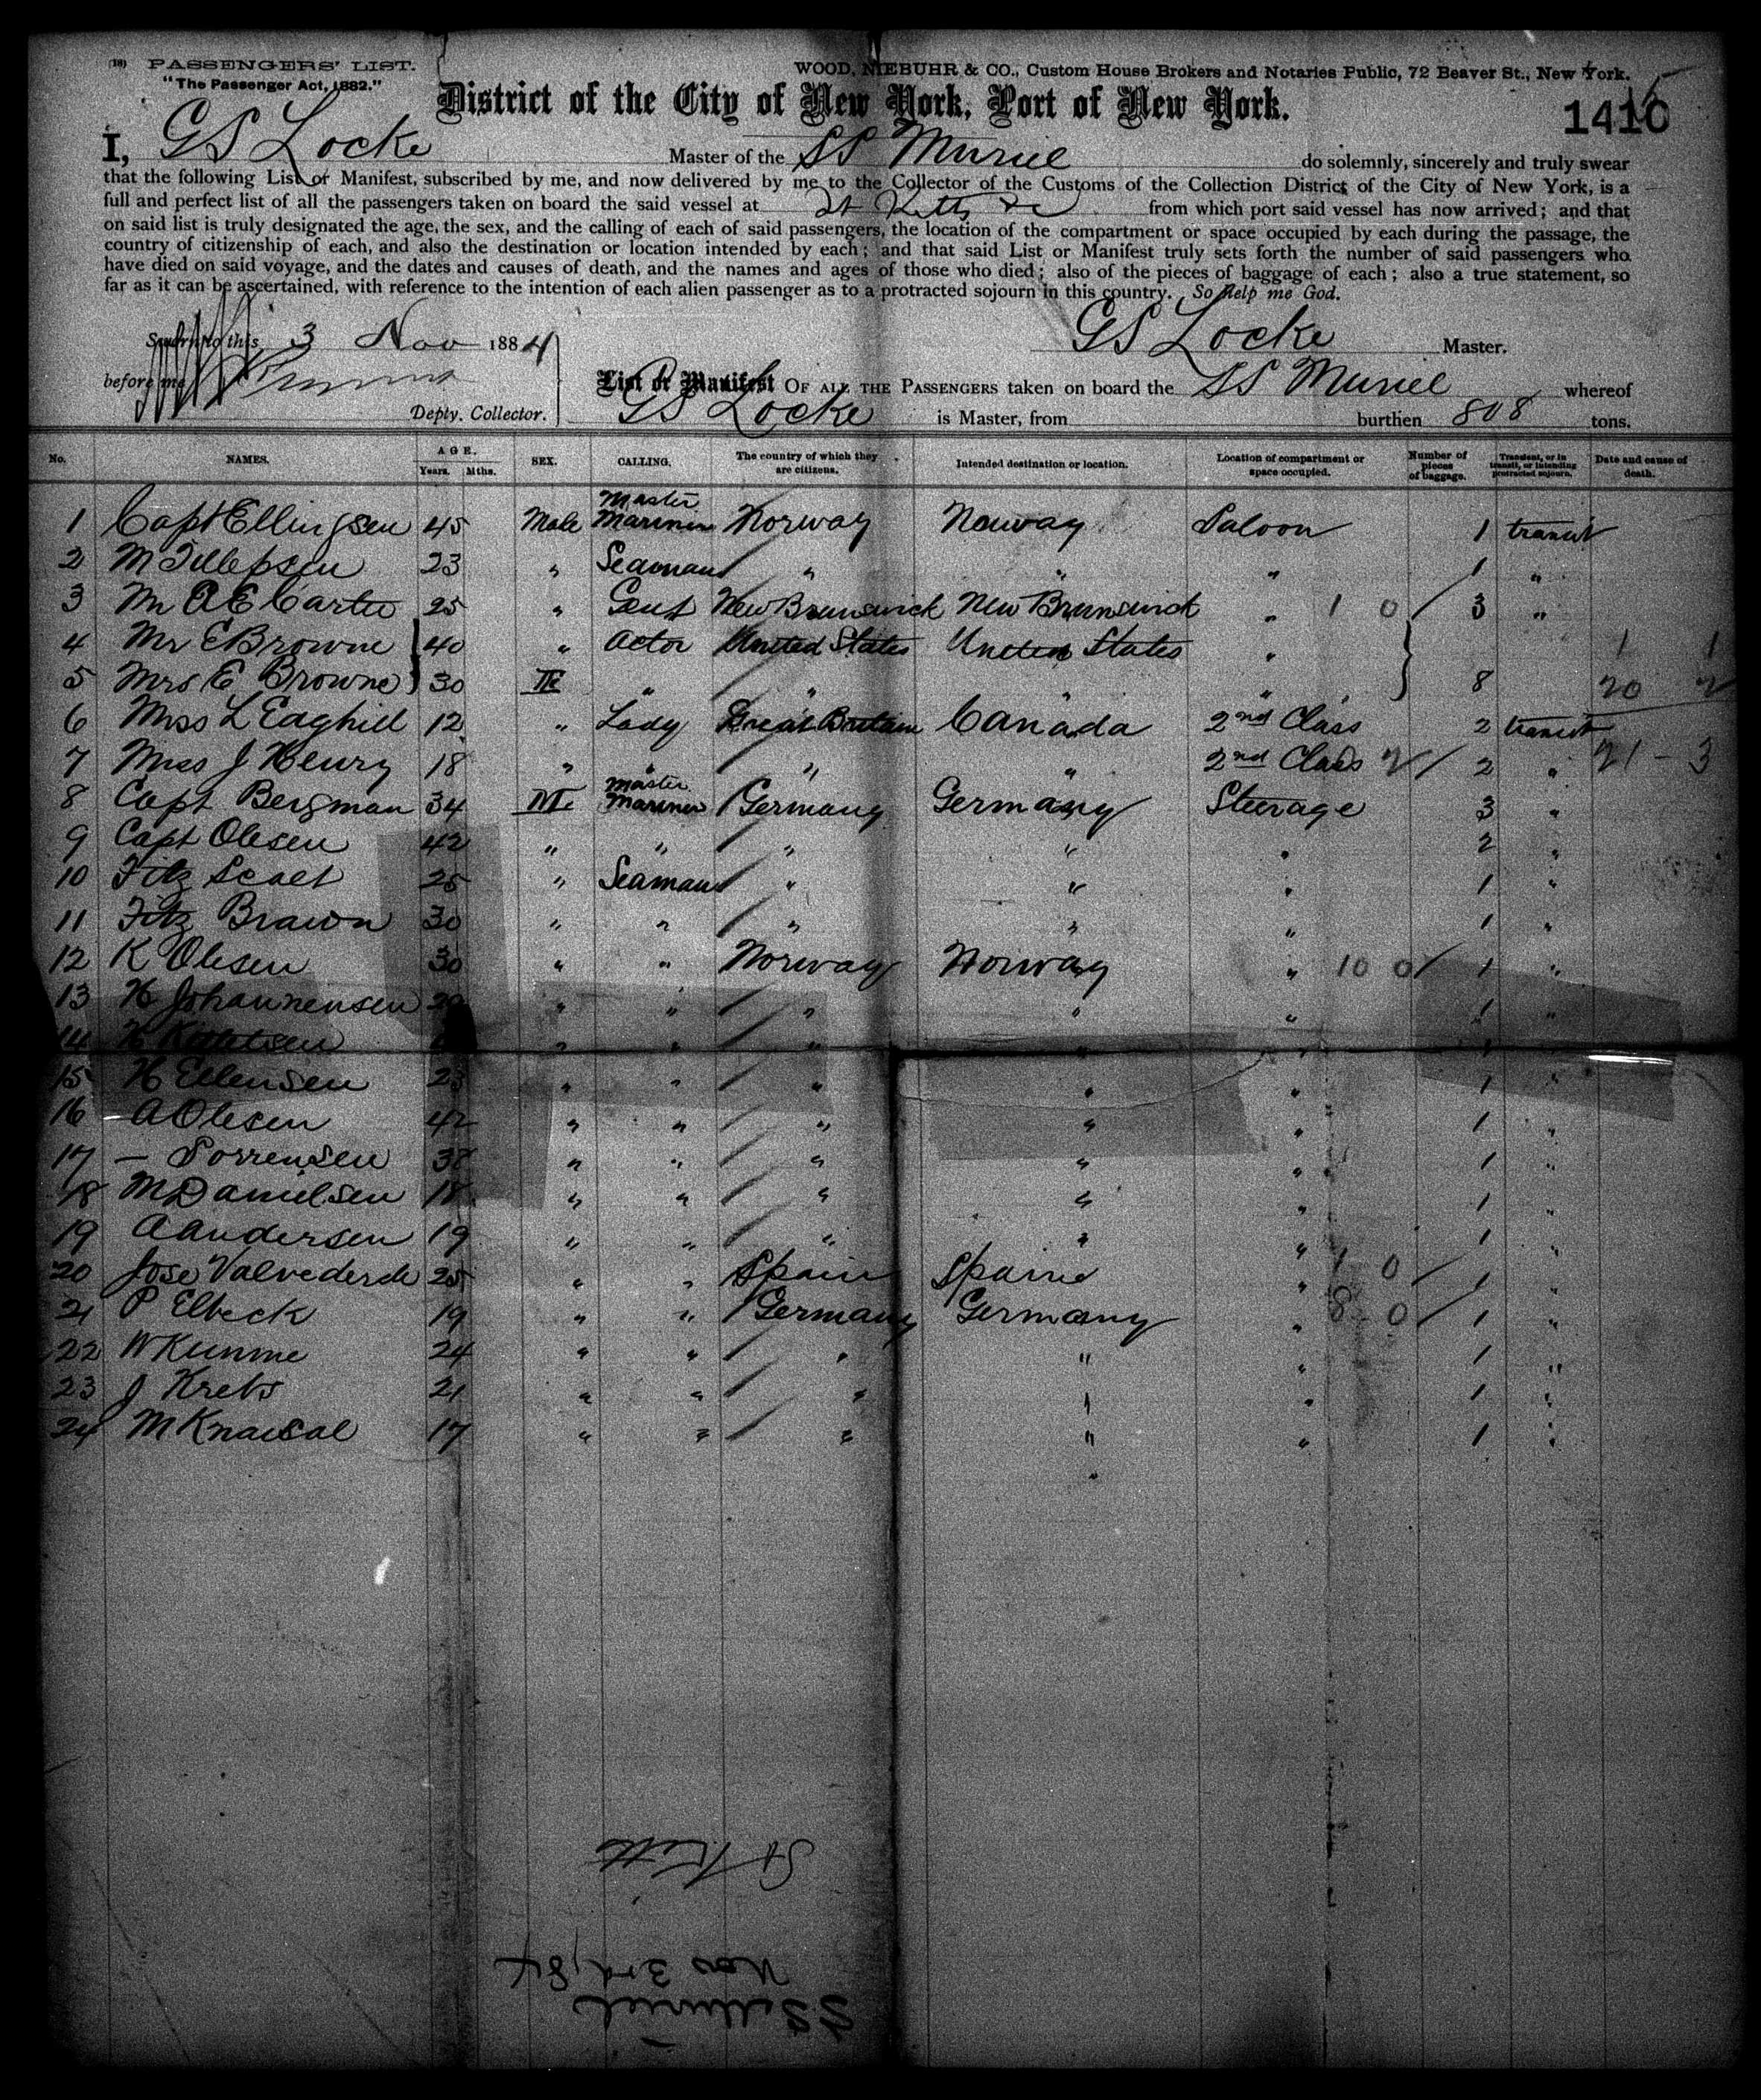 (18) PASSENGERS' LIST.
"The Passenger Act, 1882."
WOOD, NIEBUHR & CO., Custom House Brokers and Notaries Public, 72 Beaver St., New York.
District of the City of New York, Port of New York.
1410
I, GS Locke Master of the SS Muriel do solemnly, sincerely and truly swear
that the following List or Manifest, subscribed by me, and now delivered by me to the Collector of the Customs of the Collection District of the City of New York, is a
full and perfect list of all the passengers taken on board the said vessel at St Kitts &c from which port said vessel has now arrived; and that
on said list is truly designated the age, the sex, and the calling of each of said passengers, the location of the compartment or space occupied by each during the passage, the
country of citizenship of each, and also the destination or location intended by each; and that said List or Manifest truly sets forth the number of said passengers who
have died on said voyage, and the dates and causes of death, and the names and ages of those who died; also of the pieces of baggage of each; also a true statement, so
far as it can be ascertained, with reference to the intention of each alien passenger as to a protracted sojourn in this country. So help me God.
GS Locke Master.
Sworn to this 3 Nov 1884
before me
Depty. Collector.
List or Manifest OF ALL THE PASSENGERS taken on board the SS Muriel whereof
GS Locke is Master, from burthen 808 tons.
No. NAMES. AGE. Years. Mths. SEX. CALLING. The country of which they are citizens. Intended destination or location. Location of compartment or space occupied. Number of pieces of baggage. Transient, or in transit, or intending protracted sojourn. Date and cause of death.
1 Capt Ellingsen 45 Male Master Mariner Norway Norway Saloon 1 transit
2 M 23 " Seaman " " " 1 "
3 Mr A E Carter 25 " Gent New Brunswick New Brunswick " 1 0 3 "
4 Mr E Browne 40 " Actor United States United States " 1 1
5 Mrs E Browne 30 " " " " 8 20 2
6 Miss L Edghill 12 " Lady Great Britain Canada 2nd Class 2 transit
7 Miss J Henry 18 " " " " 2nd Class 2 2 " 21 - 3
8 Capt Bergman 34 Master Mariner Germany Germany Steerage 3 "
9 Capt Olesen 42 " " " " " 2 "
10 Fitz Scalt 25 " Seaman " " " 1 "
11 Fitz Brawn 30 " " " " " 1 "
12 K Olesen 30 " " Norway Norway " 10 0 1 "
13 H Johannensen 20 " " " " " 1 "
14 H " " " " " 1
15 H Ellensen 23 " " " " " 1 "
16 A Olesen 42 " " " " " 1 "
17 — Sorrensen 38 " " " " " 1 "
18 M Danielsen 18 " " " " " 1 "
19 A Andersen 19 " " " " " 1 "
20 Jose Valvederde 25 " " Spain Spain " 1 0 1 "
21 P Elbeck 19 " " Germany Germany " 8 0 1 "
22 W Kumme 24 " " " " " 1 "
23 J Krebs 21 " " " " " 1 "
24 M Knaisal 17 " " " " " 1 "
"
St Kitts
Nov 3rd, 84
SS Muriel